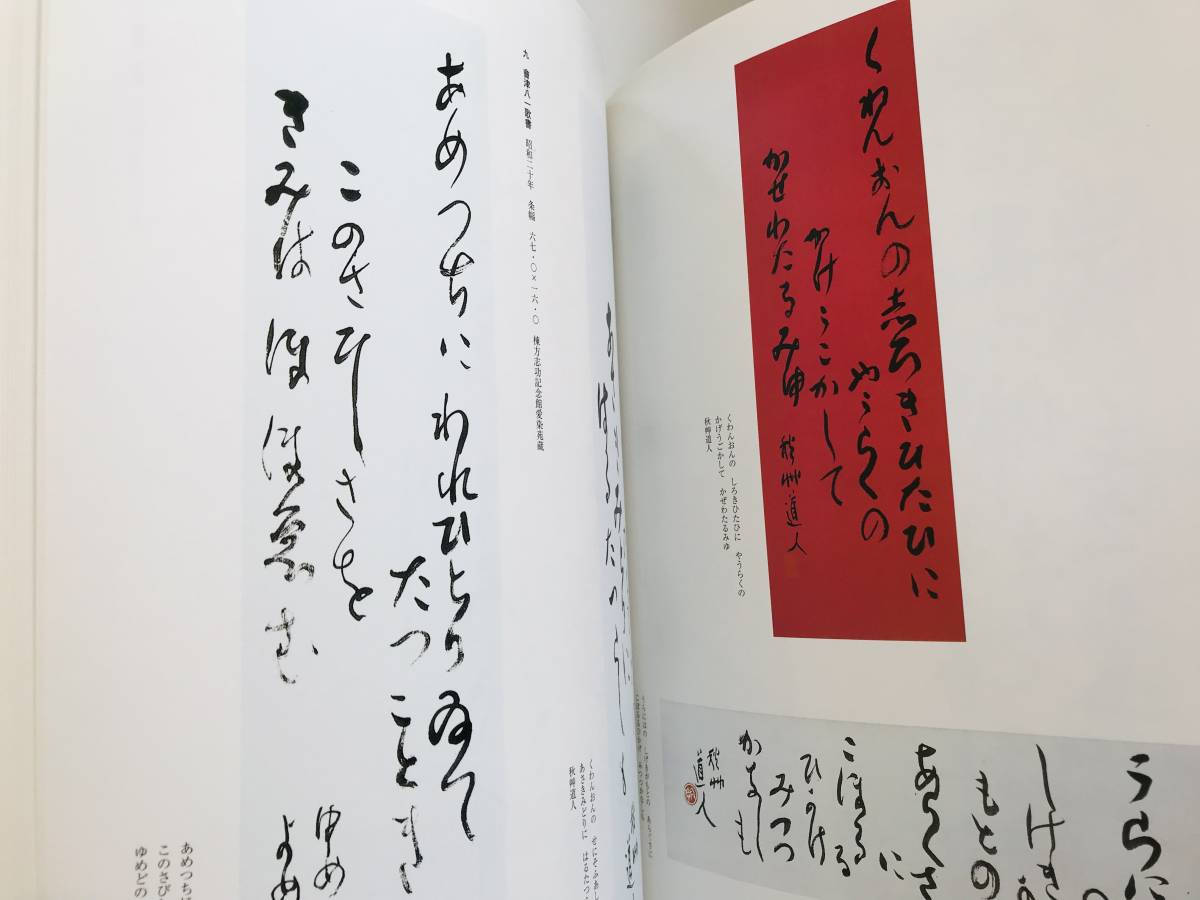 くわんおんの志ろきひたひに
やうらくの
かけうこかして
かせわたるみゆ 秋艸道人
くわんおんの しろきひたひに やうらくの
かげうごかして かぜわたるみゆ
秋艸道人
うらに
しけき
もとの
あらくさ
に
こほるる
ひかけ
みつつ
かなしも
秋艸
道人
くわんおんの せにそふあし
あさきみどりに はるたつ
秋艸道人
九 會津八一歌書 昭和二十年 条幅 六七・〇×一六・〇 棟方志功記念館愛染苑蔵
あめつちにわれひとりゐて
たつことき
このさひしさを
きみはほほゑむ
ゆめ
よめ
あめつち
このさび
ゆめどの